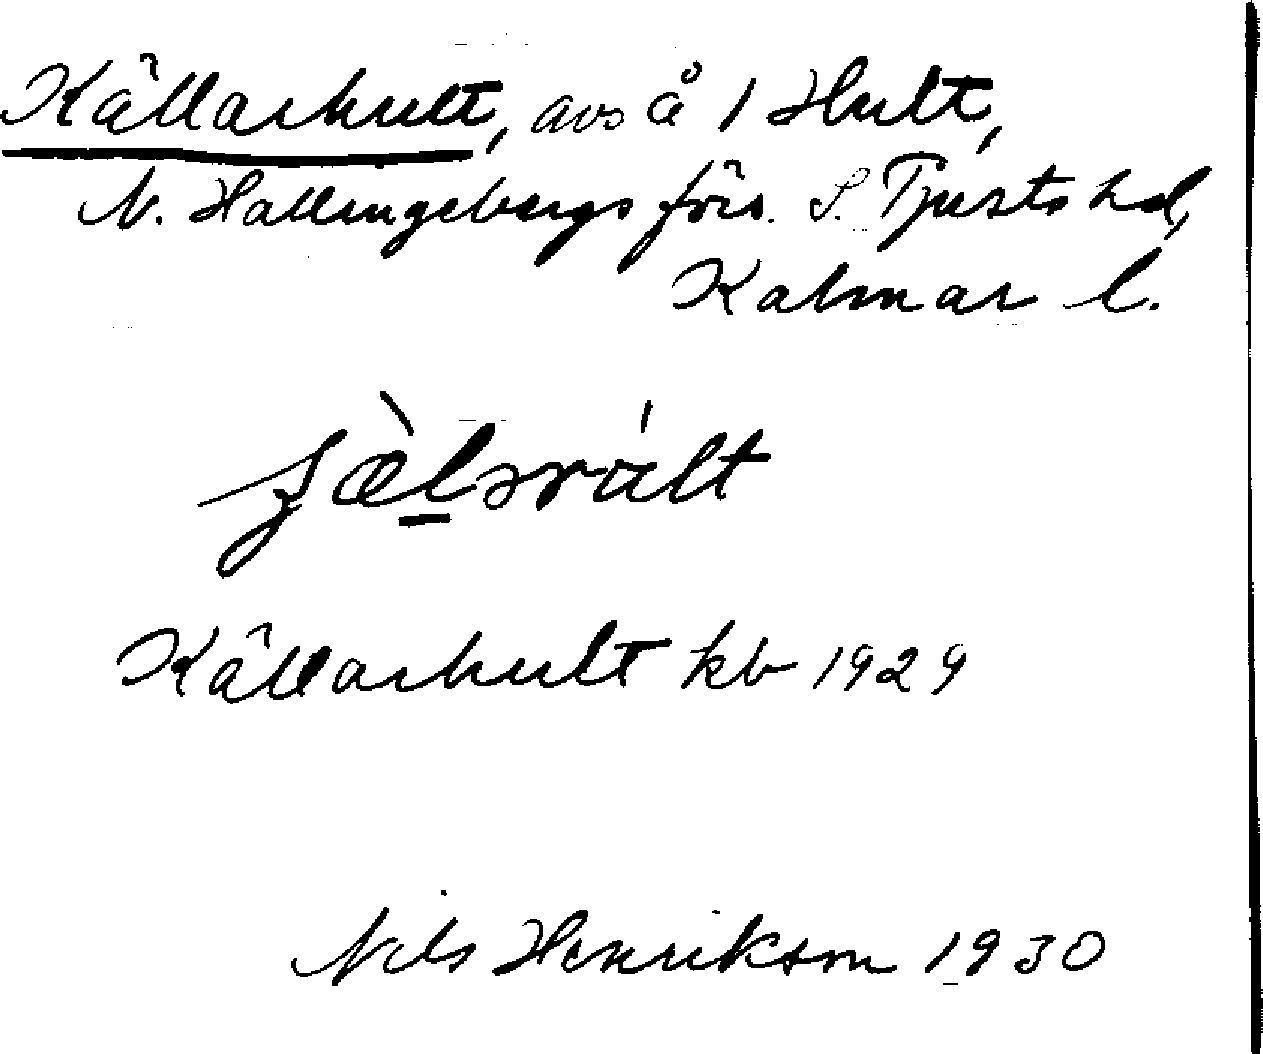 Källarhult, avs å 1 Hult,
N. Hallingebergs förs. S. Tjusts hd,
Kalmar l.
Källarhult kb 1929
Nils Henrikson 1930